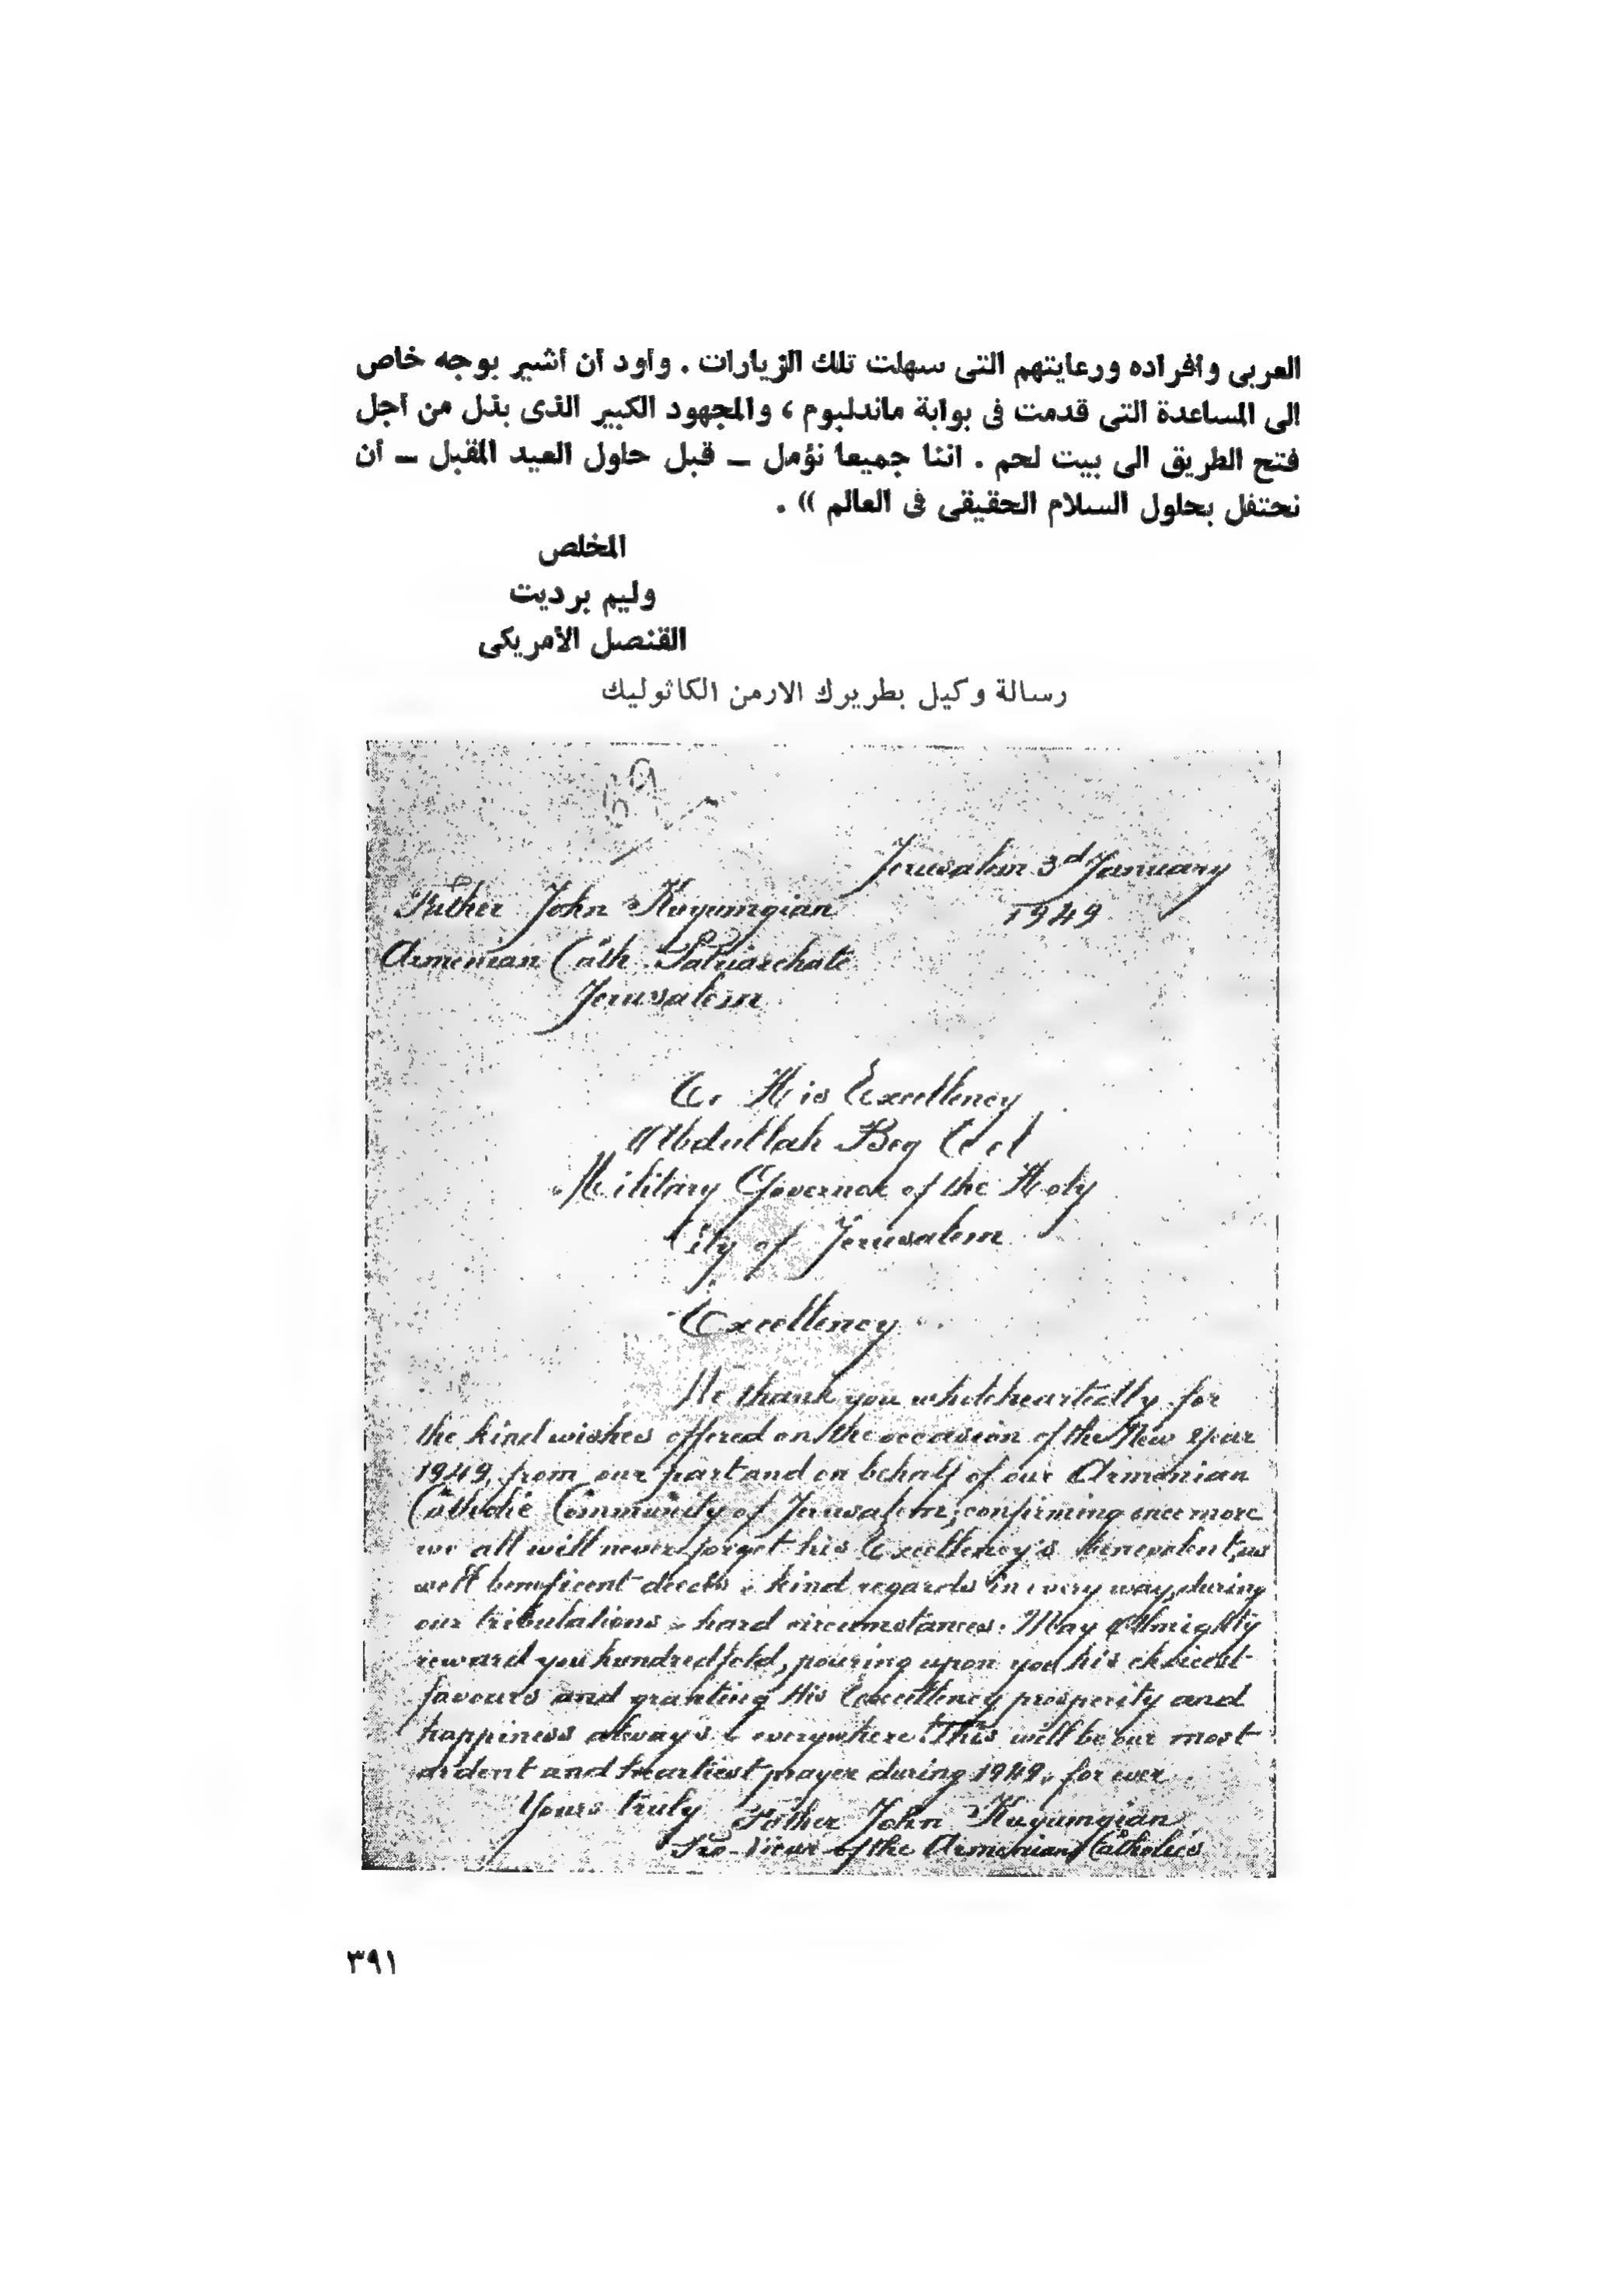 العربى وأفراده ورعايتهم التى سهلت تلك الزيارات . وأود أن أشير بوجه خاص
الى المساعدة التى قدمت فى بوابة ماندلبوم ، والمجهود الكبير الذى بذل من أجل
فتح الطريق الى بيت لحم . اننا جميعا نؤمل ــ قبل حلول العيد المقبل ــ أن
نحتفل بحلول السلام الحقيقى فى العالم )) .
المخلص
وليم برديت
القنصل الأمريكى
رسالة وكيل بطريرك الارمن الكاثوليك
Jerusalem 3d January
1949
Father John Kuyumgian
Armenian Cath. Patriarchate
Jerusalem
His Excellency
Abdullah Bey
Military Governor of the Holy
City of Jerusalem
Excellency
We thank you wholeheartedly for
the kind wishes offered on the occasion of the New Year
1949, from our part and on behalf of our Armenian
Catholic Community of Jerusalem, confirming once more
we all will never forget his Excellency's benevolent, as
well beneficent deeds & kind regards in every way, during
our tribulations & hard circumstances. May Almighty
reward you hundredfold, pouring upon you his choicest
favours and granting His Excellency prosperity and
happiness always & everywhere! This will be our most
ardent and heartiest prayer during 1949, for ever
Yours truly Father John Kuyumgian
Pro-Vicar of the Armenian Catholics
٣٩١